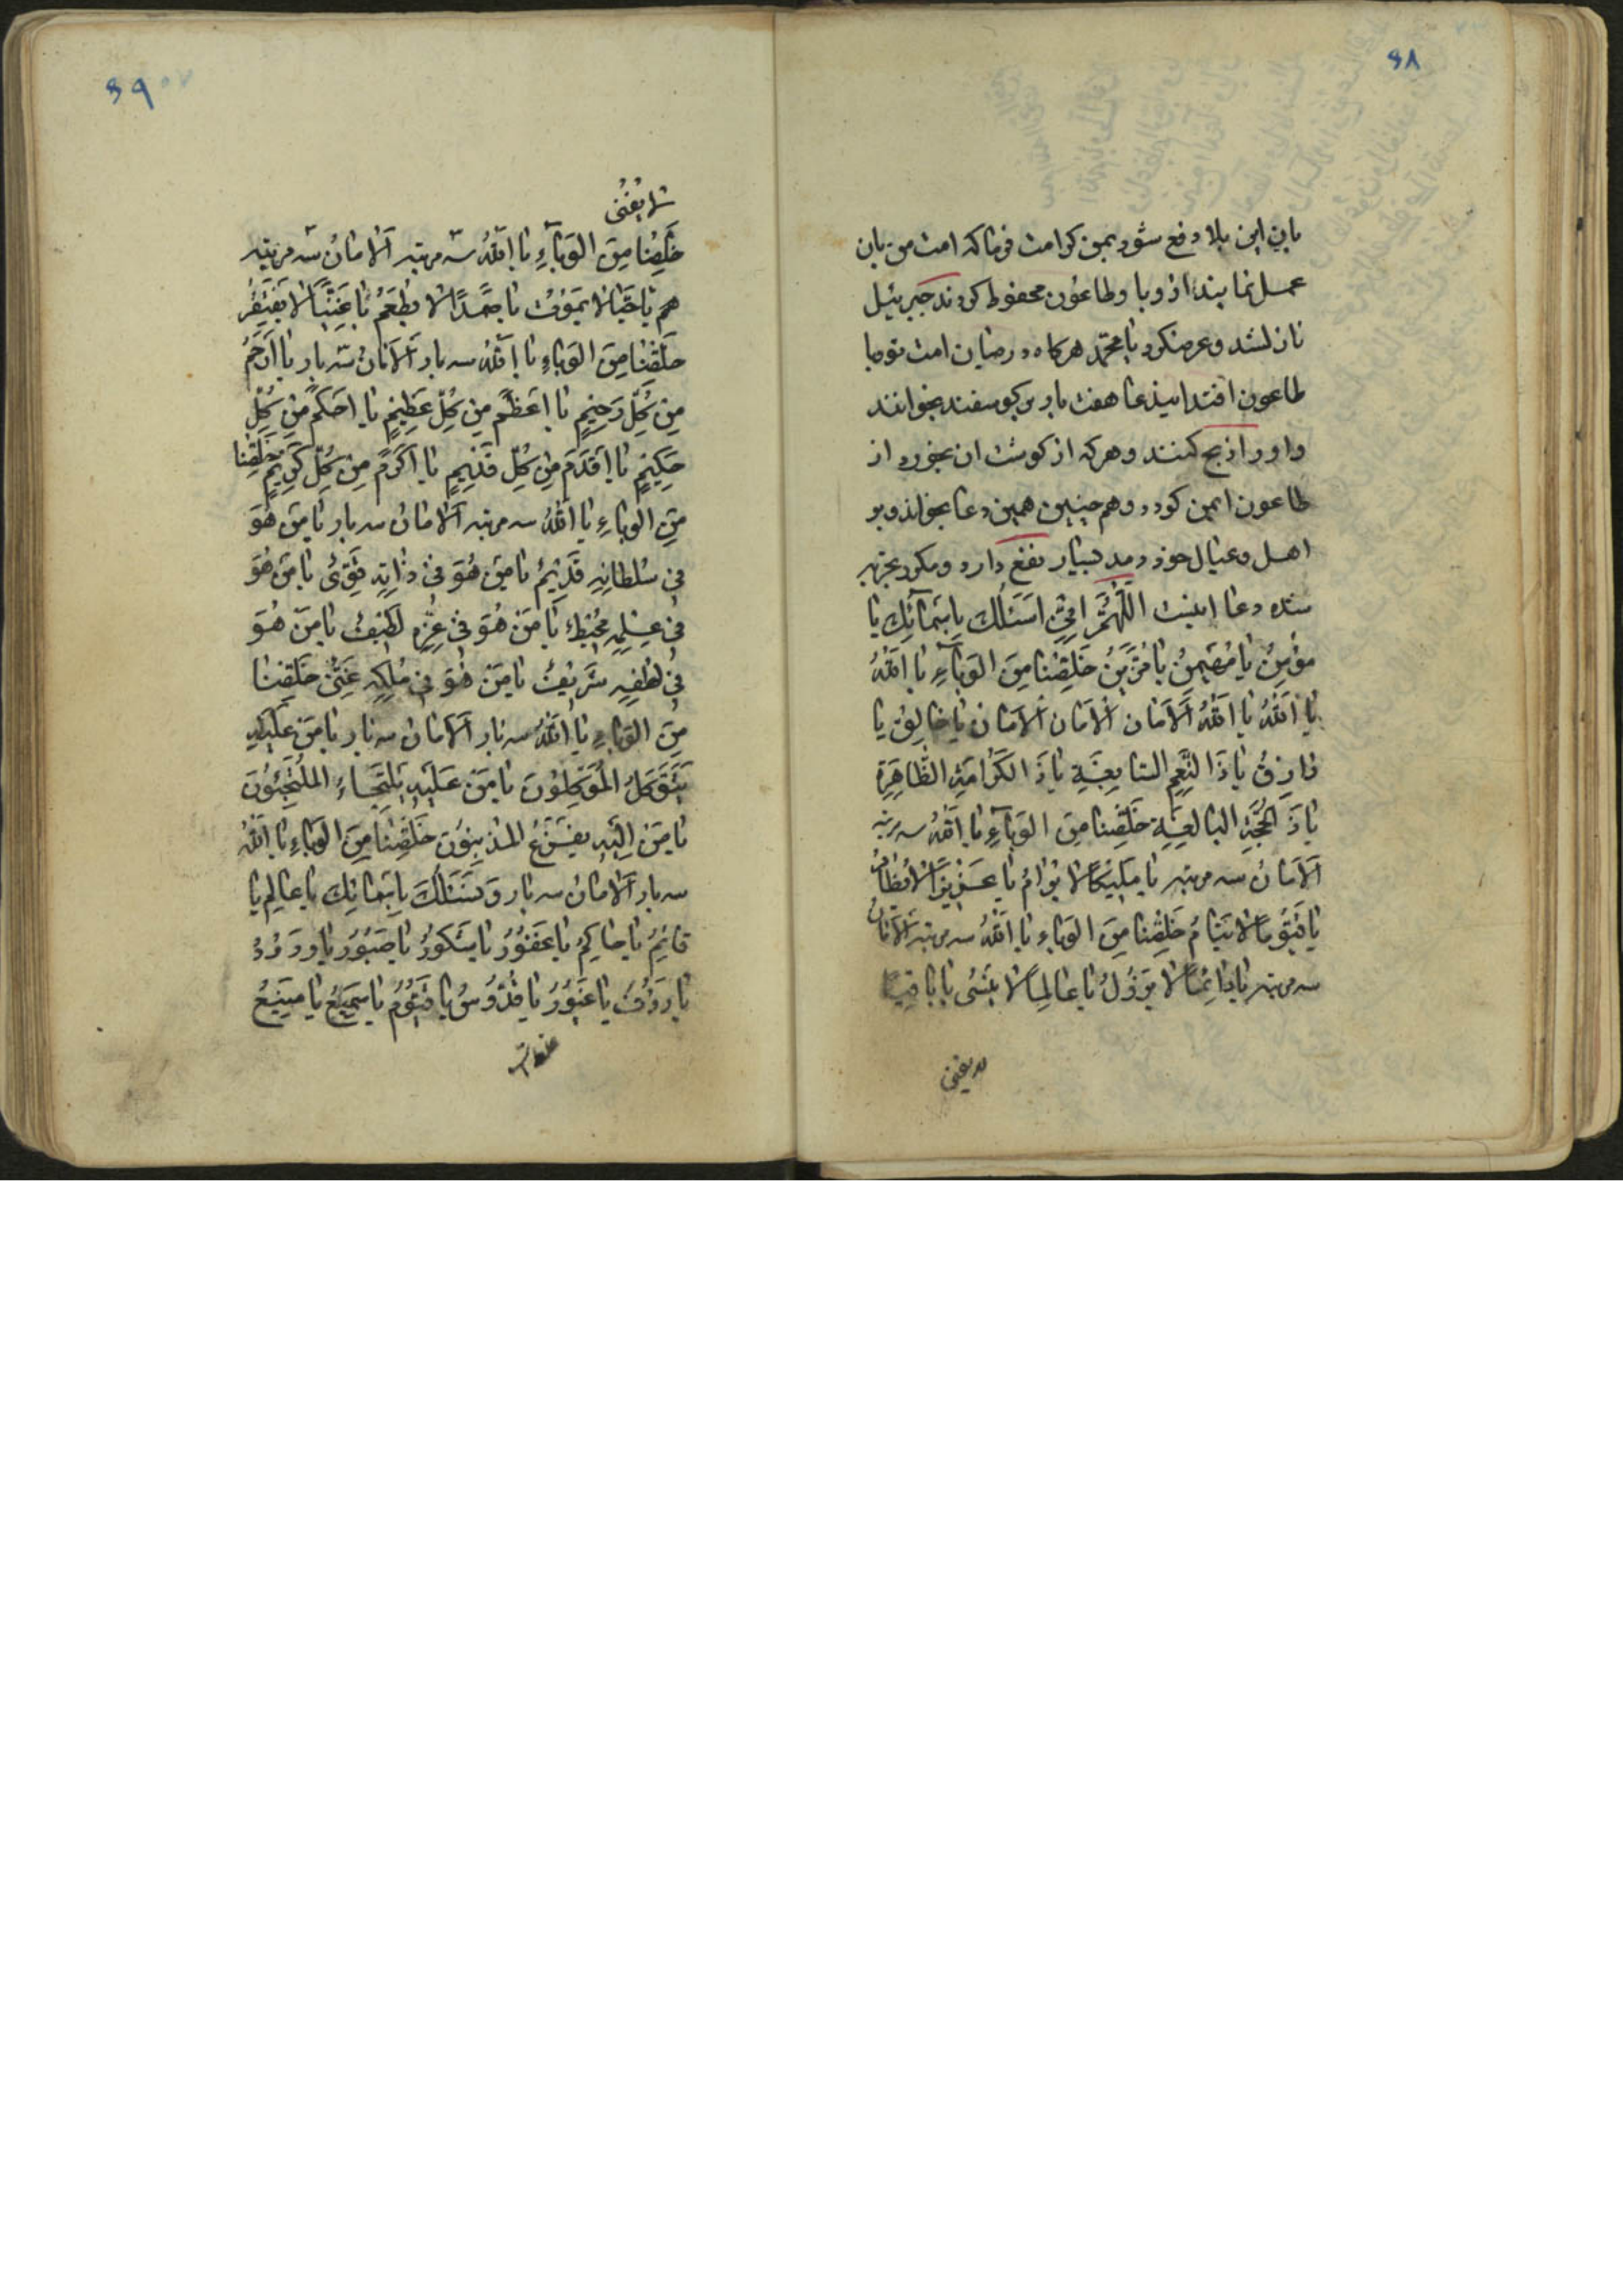 ۶۸
باین این بلا دفع شود بمن کرامت فرما که امت من بان
عمل نمایند از وبا و طاعون محفوظ کردند جبرئیل
نازلشد و عرضکرد یا محمّد هرکاه در میان امت تو وبا
طاعون افتد این دعا هفت بار بر کوسفند بخوانند
و او را ذبح کنند و هرکه از کوشت ان بخورد از
طاعون ایمن کردد و هم چنین همین دعا بخواند و بر
اهل و عیال خود دمد بسیار نفع دارد و مکرر بتجربه
شده دعا اینست اَللّهُمَّ اِنّی اَسْئَلُكَ بِاَسْمائِكَ یا
مُؤْمِنُ یا مُهَیْمِنُ یا مُزَیِّنُ خَلِّصْنا مِنَ الوَباءِ یا اَللهُ
یا اَللهُ یا اَللهُ اَلاَمان اَلاَمان اَلاَمان یا خالِقُ یا
رازِقُ یا ذَا النِّعَمِ السّابِغَةِ یا ذَا الکَرامَةِ الظّاهِرَةِ
یا ذَا الحُجَّةِ البالِغَةِ خَلِّصْنا مِنَ الوَباءِ یا اَللهُ سه مرتبه
اَلاَمانُ سه مرتبه یا مَلِیکًا لا یُرامُ یا عَزیزًا لا یُضامُ
یا قَیُّومًا لا یَنامُ خَلِّصْنا مِنَ الوَباءِ یا اَللهُ سه مرتبه اَلاَمانُ
سه مرتبه یا دائِمًا لا یَزُولُ یا عالِمًا لا یَنْسٰی یا باقِیًا
لا یفنی
۶۹
لا یَفْنٰی
خَلِّصْنا مِنَ الوَباءِ یا اَللهُ سه مرتبه اَلاَمانُ سه مرتبه
هم یا حَیًّا لا یَمُوتُ یا صَمَدًا لا یُطْعَمُ یا غَنِیًّا لا یَفْتَقِرُ
خَلِّصْنا مِنَ الوَباءِ یا اَللهُ سه بار اَلاَمانُ سه بار یا اَرْحَمُ
مِنْ کُلِّ رَحیمٍ یا اَعْظَمُ مِنْ کُلِّ عَظیمٍ یا اَحْکَمُ مِنْ کُلِّ
حَکیمٍ یا اَقْدَمُ مِنْ کُلِّ قَدیمٍ یا اَکْرَمُ مِنْ کُلِّ کَریمٍ خَلِّصْنا
مِنَ الوَباءِ یا اَللهُ سه مرتبه اَلاَمانُ سه بار یا مَنْ هُوَ
فی سُلْطانِهِ قَدیمٌ یا مَنْ هُوَ فی ذاتِهِ قَوِیٌ یا مَنْ هُوَ
فی عِلْمِهِ مُحیطٌ یا مَنْ هُوَ فی عِزِّهِ لَطیفٌ یا مَنْ هُوَ
فی لُطْفِهِ شَریفٌ یا مَنْ هُوَ فی مُلْکِهِ غَنِیٌّ خَلِّصْنا
مِنَ الوَباءِ یا اَللهُ سه بار اَلاَمانُ سه بار یا مَنْ عَلَیْهِ
یَتَوَکَّلُ المُوَکِّلُونَ یا مَنْ عَلَیْهِ یَلْتَجاءُ المُلْتَجِئُونَ
یا مَنْ اِلَیْهِ یَفْزَعُ المُذْنِبُونَ خَلِّصْنا مِنَ الوَباءِ یا اَللهُ
سه بار اَلاَمانُ سه بار وَ نَسْئَلُكَ بِاَسْمائِكَ یا عالِمُ یا
قائِمُ یا حاکِمُ یا غَفُورُ یا شَکُورُ یا صَبُورُ یا وَدُودُ
یا رَؤُفُ یا غَیُورُ یا قُدُّوسُ یا قَیُّومُ یا سَمیعُ یا مَنیعُ